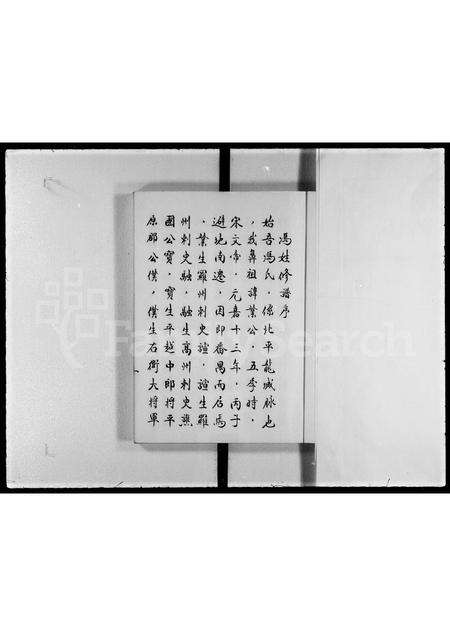 馮姓修譜序
始吾馮氏，係北平龍城脉也
，我鼻祖諱業公，五季時，
宋文帝，元嘉十三年，丙子
避地南遷，因即番禺而居焉
，業生羅州刺史諠，諠生羅
州刺史融，融生高州刺史兼
國公寶，寶生平越中郎將平
原郡公僕，僕生右衛大將軍
FamilySearch